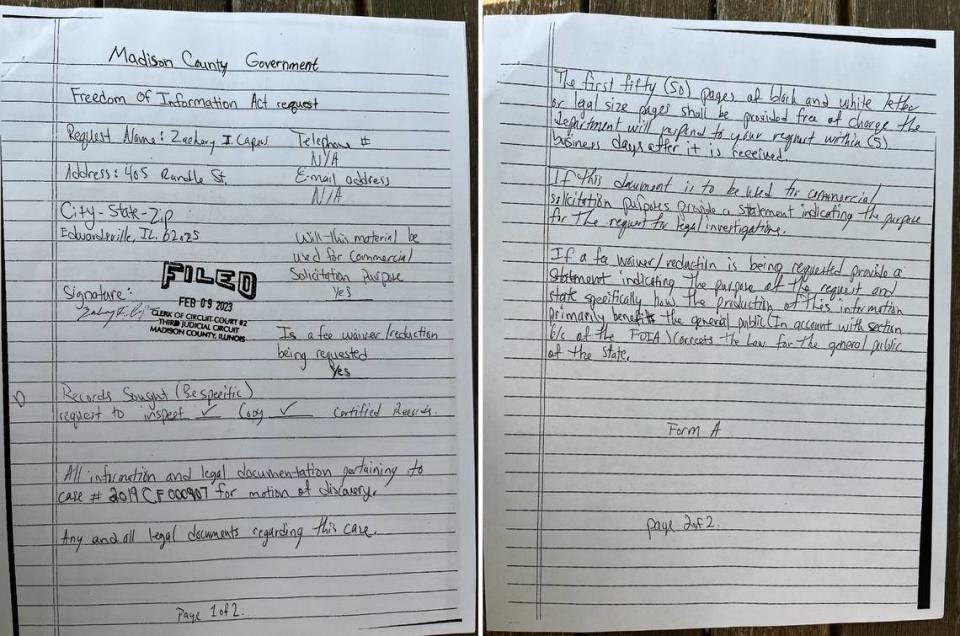 Madison County Government
Freedom Of Information Act request
Request Name: Zachary I. Capus
Telephone #
N/A
Address: 405 Randle St.
E-mail address
N/A
City-State-Zip
Edwardsville, IL. 62025
Will this material be
used for commercial
Solicitation Purpose
Yes
FILED
FEB 09 2023
CLERK OF CIRCUIT COURT #2
THIRD JUDICIAL CIRCUIT
MADISON COUNTY, ILLINOIS
Signature:
Is a fee waiver/reduction
being requested
Yes
Records Sought (Be specific)
request to inspect ✓ Copy ✓ Certified Records.
All information and legal documentation pertaining to
case # 2019 CF000907 for motion of discovery.
Any and all legal documents regarding this case.
Page 1 of 2.
The first fifty (50) pages of black and white letter
or legal size pages shall be provided free of charge the
Department will respond to your request within (5)
business days after it is received.
If this document is to be used for commercial
solicitation purposes provide a statement indicating the purpose
for The request for legal investigations.
If a fee waiver/reduction is being requested provide a
statement indicating the purpose of the request and
state specifically how the production of This information
primarily benefits the general public (In account with section
6/c of the FOIA) corrects the Law for the general public
of the State.
Form A
page 2 of 2.